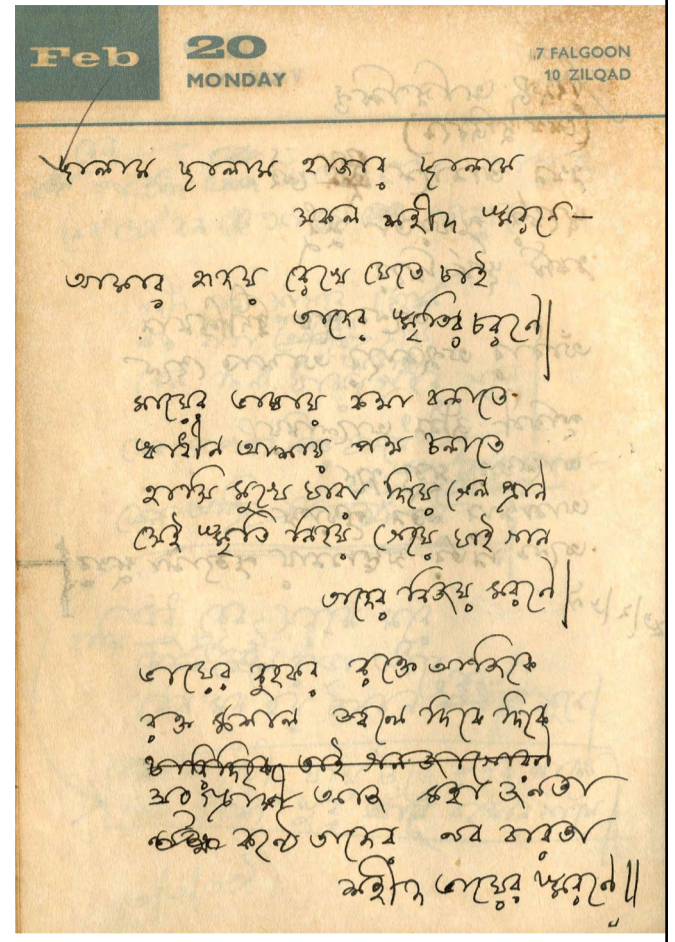 Feb
20
MONDAY
7 FALGOON
10 ZILQAD
সালাম সালাম হাজার সালাম
সকল শহীদ স্মরণে—
আমার হৃদয় রেখে যেতে চাই
তাদের স্মৃতির চরণে।
মায়ের ভাষায় কথা বলাতে
স্বাধীন আশায় পথ চলাতে
হাসি মুখে যারা দিয়ে গেল প্রাণ
সেই স্মৃতি নিয়ে গেয়ে যাই গান
তাদের বিজয় মরণে।
ভায়ের বুকের রক্তে আজিকে
রক্ত মশাল জ্বলে দিকে দিকে
সংগ্রামী আজ মহা জনতা
কণ্ঠে তাদের নব বারতা
শহীদ ভায়ের স্মরণে॥